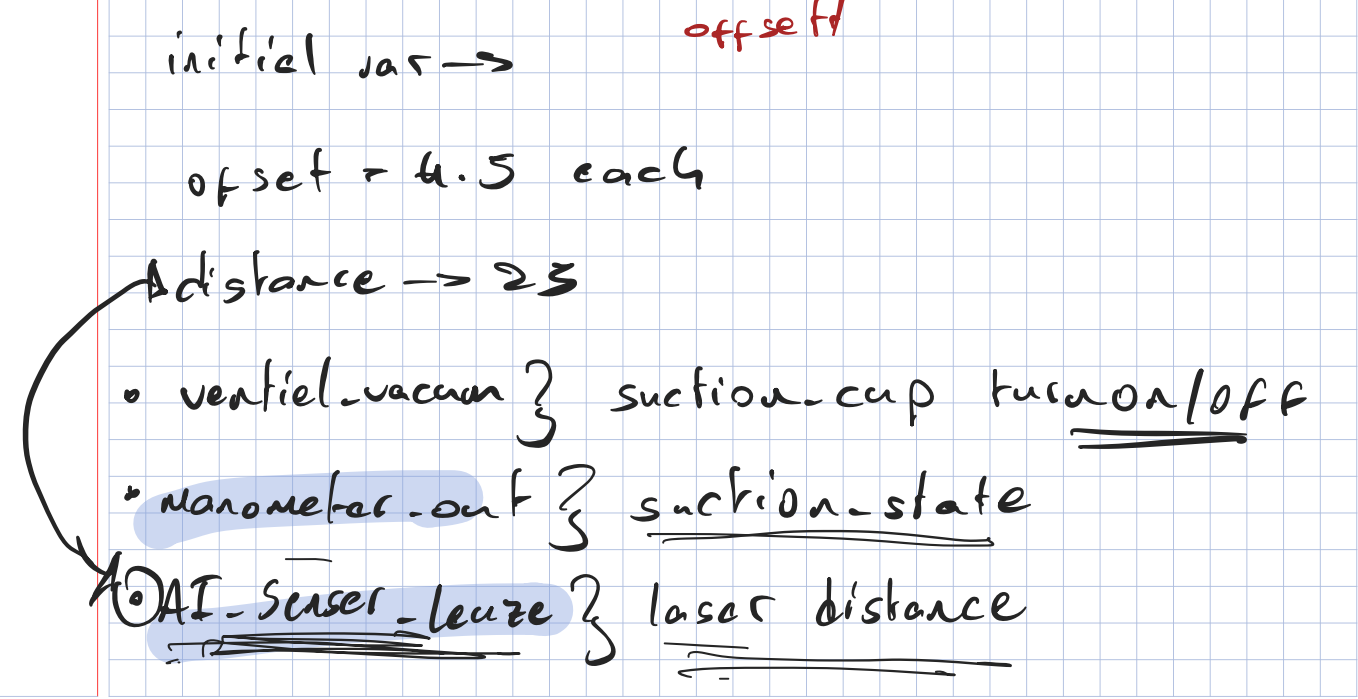 offset
initial var →
ofset = 4.5 each
distance → 23
• ventiel_vacuum } suction_cap turn on/off
• manometer_out } suction_state
• AI_Senser_leuze } laser distance